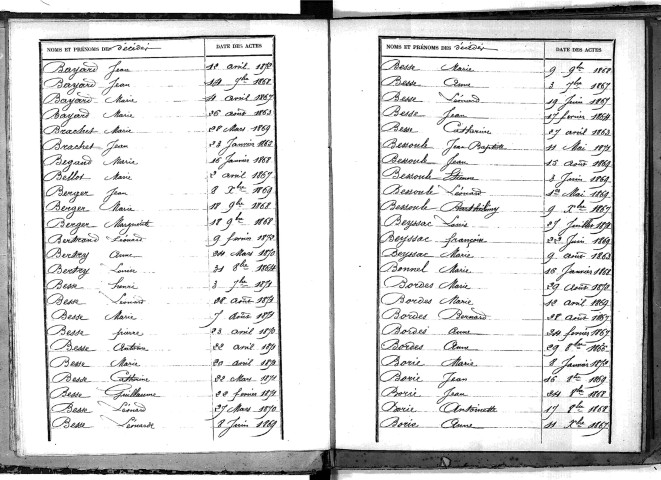 NOMS ET PRÉNOMS DES décédés DATE DES ACTES
Bayard Jean 12 avril 1872
Bayard Jean 14 9bre 1868
Bayard Marie 4 avril 1867
Bayard Marie 26 août 1863
Brachet Marie 28 Mars 1869
Brachet Jean 23 Janvier 1862
Begaud Marie 16 Janvier 1868
Bellot Marie 2 avril 1867
Berger Jean 8 Xbre 1869
Berger Marie 18 9bre 1868
Berger Marguerite 18 9bre 1868
Bertrand Léonard 9 février 1872
Bertry Anne 24 Mars 1870
Bertry 21 8bre 1864
Besse 3 7bre 1871
Besse Léonard 28 août 1871
Besse Marie 7 août 1871
Besse pierre 23 avril 1870
Besse Antoine 22 avril 1871
Besse Marie 20 avril 1871
Besse Catherine 22 Mars 1871
Besse Guillaume 22 février 1871
Besse Léonard 27 Mars 1870
Besse Léonarde 2 Juin 1869
NOMS ET PRÉNOMS DES décédés DATE DES ACTES
Besse Marie 9 9bre 1868
Besse Anne 3 7bre 1867
Besse Léonard 19 Juin 1867
Besse Jean 17 février 1864
Besse Catherine 27 avril 1863
Bessoule Jean Baptiste 11 Mai 1871
Bessoule Jean 15 août 1869
Bessoule Etienne 3 Juin 1869
Bessoule Léonard 1er Mai 1869
Bessoule Barthélemy 9 Xbre 1867
Beyssac Louis 27 Juillet 1871
Beyssac françois 22 Juin 1869
Beyssac Marie 9 août 1863
Bonnel Marie 16 Janvier 1862
Bordes Marie 29 août 1870
Bordes Marie 12 avril 1869
Bordes Bernard 28 août 1867
Bordes Anne 24 février 1867
Bordes Anne 29 8bre 1865
Borie Marie 8 Janvier 1872
Borie Jean 16 8bre 1869
Borie Jean 24 8bre 1868
Borie Antoinette 17 8bre 1868
Borie Anne 11 Xbre 1867